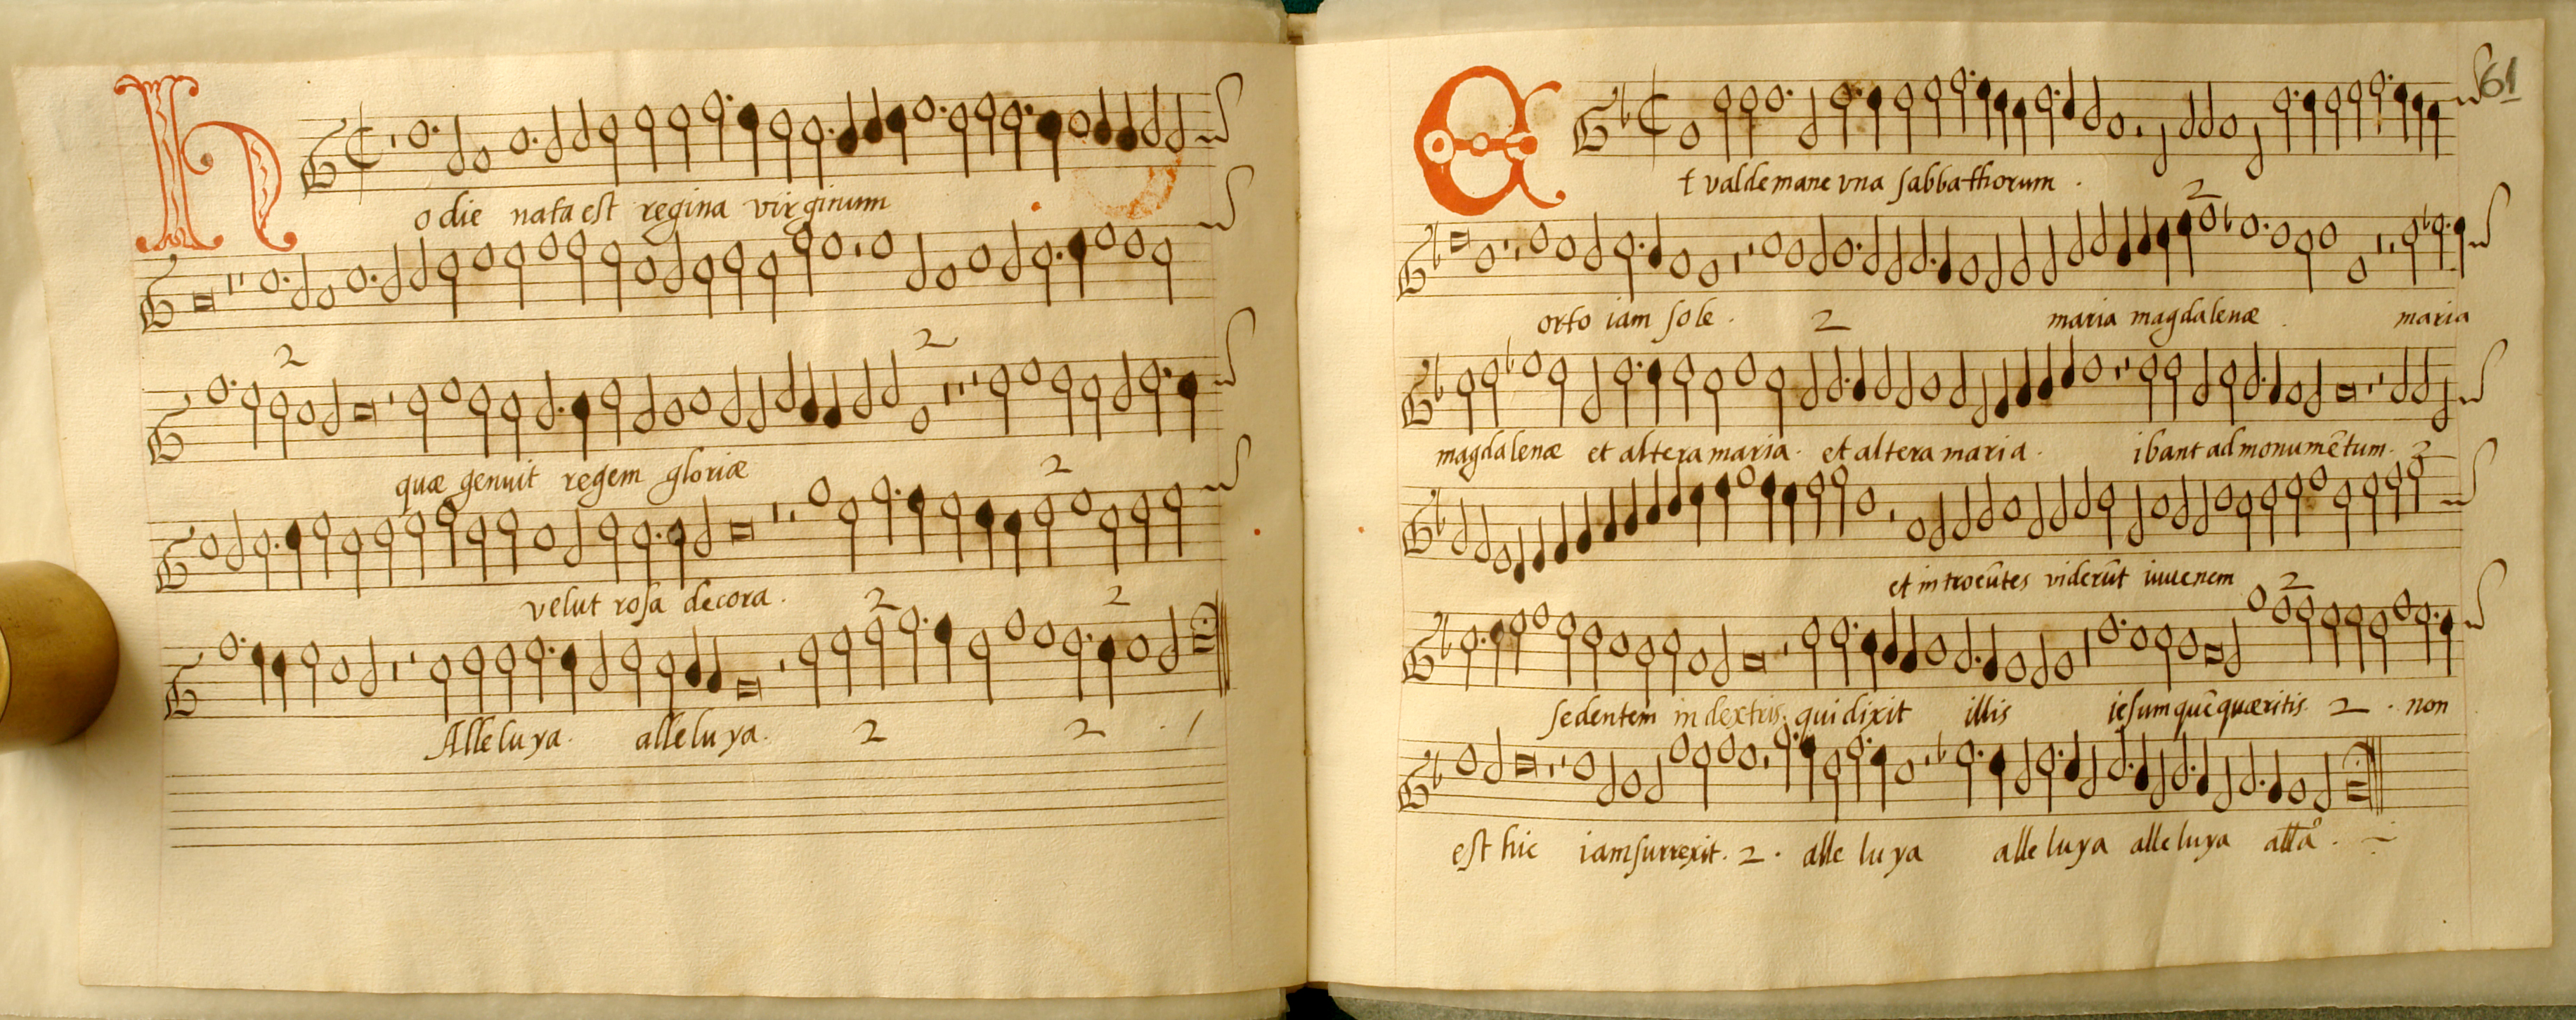 Hodie nata est regina virginum
2
2
quæ genuit regem gloriæ
2
velut rosa decora.
2 2
Alleluya. alleluya. 2 2 . /
61
Et valde mane vna sabbathorum .
2
orto iam sole . 2 maria magdalenæ . maria
magdalenæ et altera maria. et altera maria . ibant ad monumētum.
2
et introeūtes viderūt iuuenem
2
sedentem in dextris. qui dixit illis iesum quē quæritis. 2 . non
est hic iam surrexit. 2 . alleluya alleluya alleluya alla .